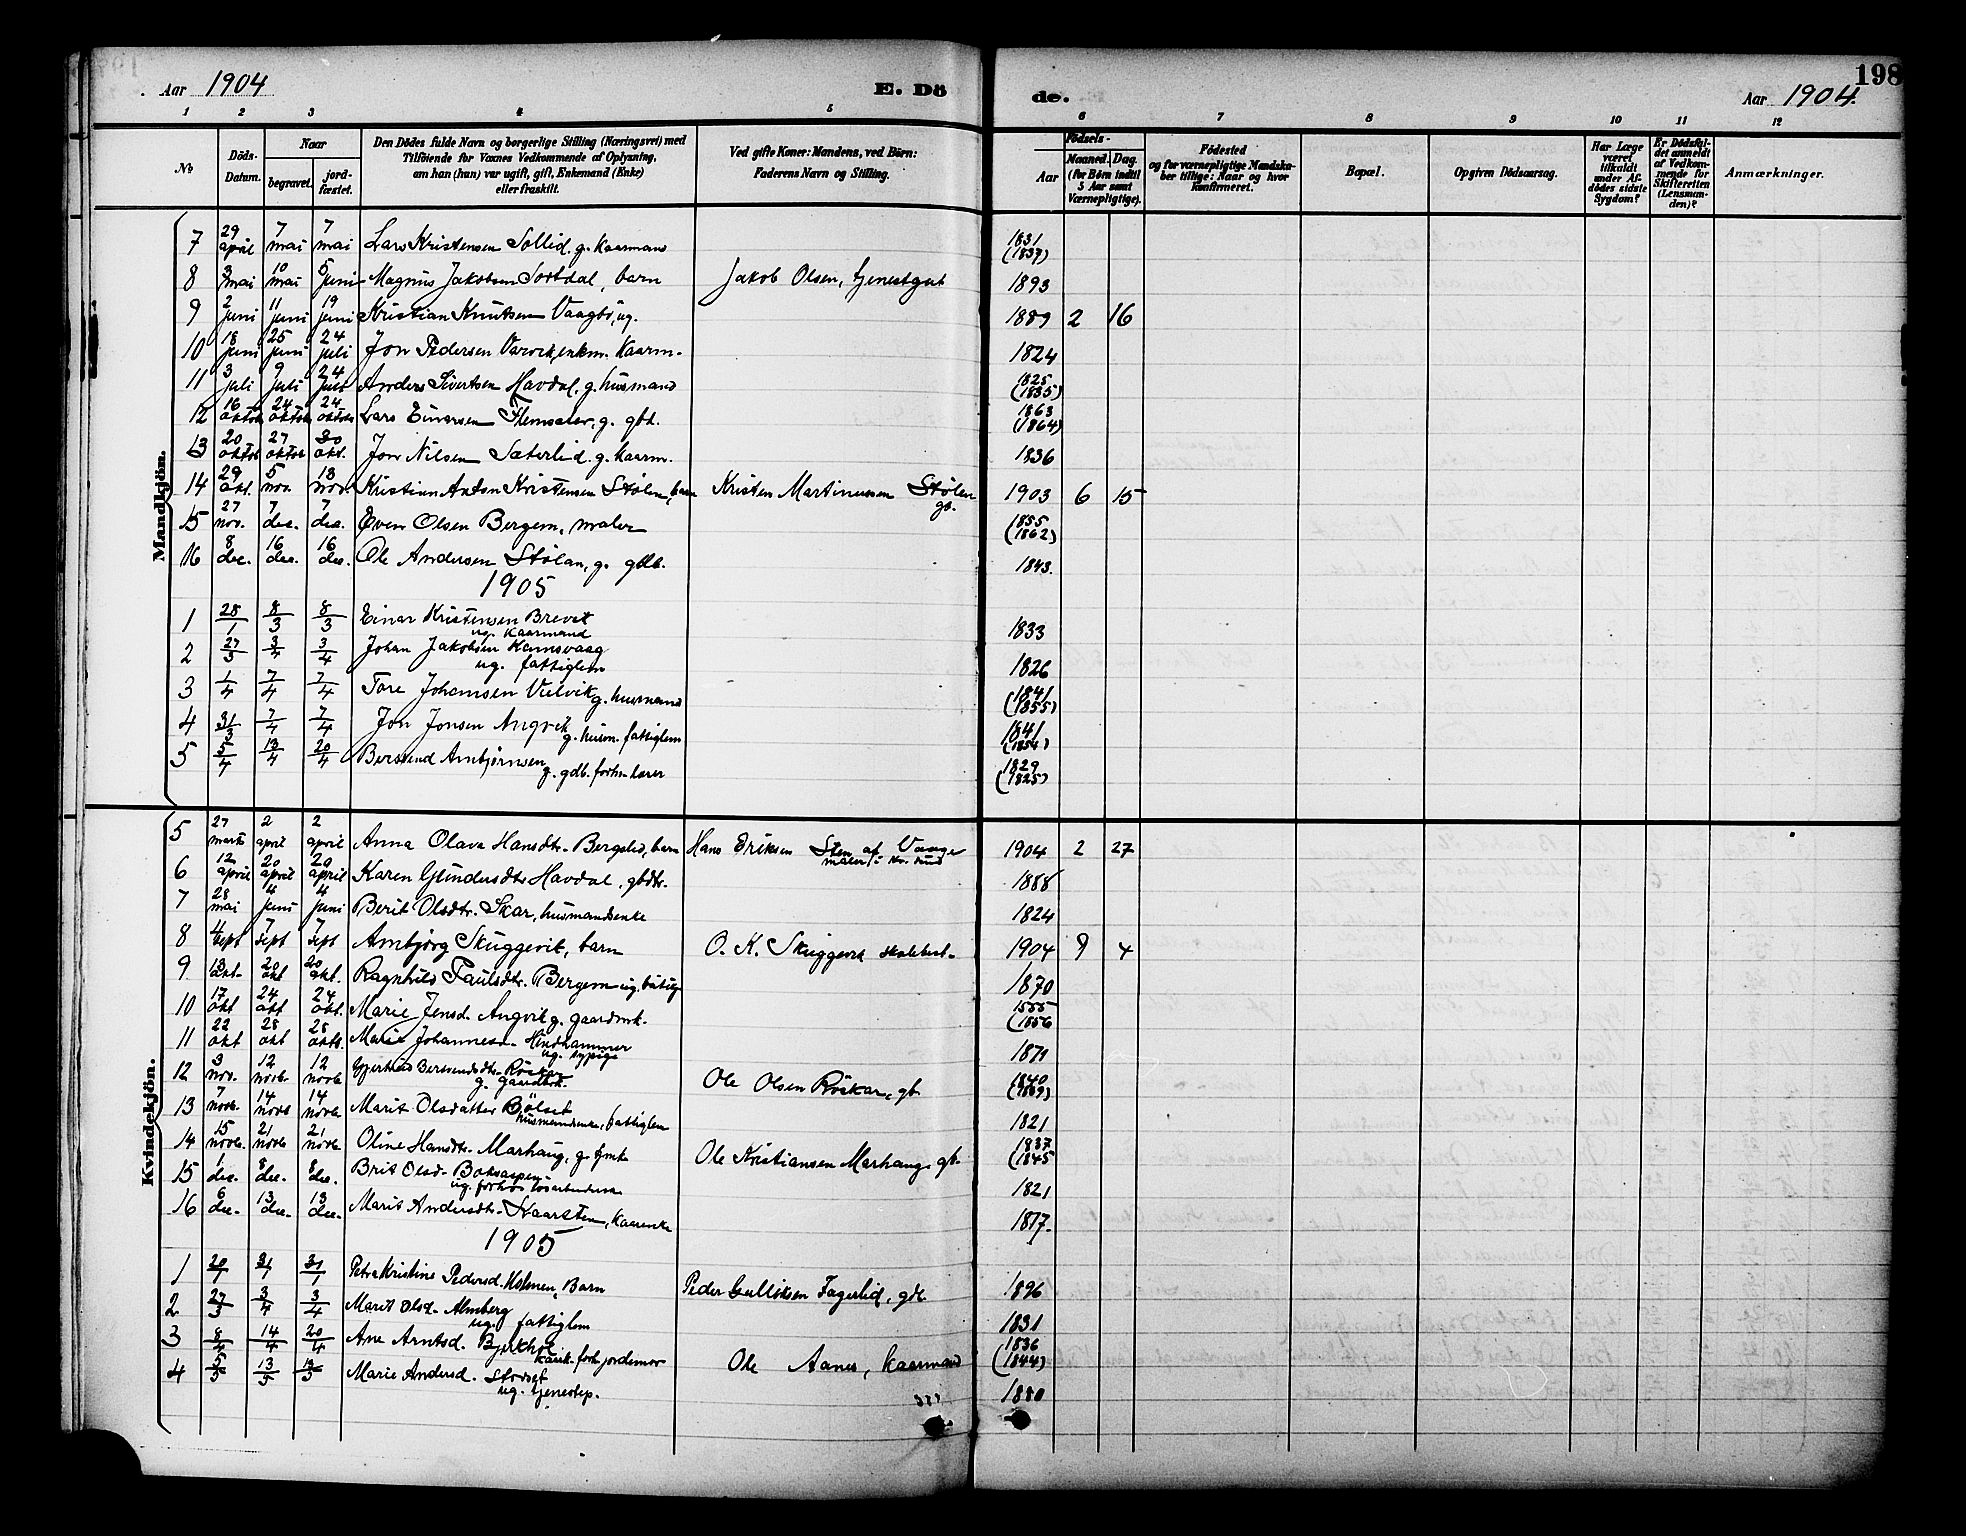 Aar 1904
E. Dö
de.
Aar 1904.
198
1 2 3 4 5 6 7 8 9 10 11 12
No
Döds-Datum.
Naar
begravet.
jord-fæstet.
Den Dödes fulde Navn og borgerlige Stilling (Næringsvei) med
Tilföiende for Voxnes Vedkommende af Oplysning,
om han (hun) var ugift, gift, Enkemand (Enke)
eller fraskilt.
Ved gifte Koner: Mandens, ved Börn:
Faderens Navn og Stilling.
Födsels-
Aar
Maaned. Dag.
(for Börn indtil
5 Aar samt
Værnepligtige).
Födested
og for værnepligtige Mandska-
ber tillige: Naar og hvor
Konfirmeret.
Bopæl.
Opgiven Dödsaarsag.
Har Læge
været
tilkaldt
under Af-
dödes sidste
Sygdom?
Er Dödsfal-
det anmeldt
af Vedkom-
mende for
Skifteretten
(Lensman-
den)?
Anmærkninger.
Mandkjön.
7 29 april 7 mai 7 mai Lars Kristensen Sollid, g. kaarmand 1831 (1837)
8 3 mai 10 mai 5 juni Magnus Jakobsen Sortdal, barn Jakob Olsen, tjenestgut 1893
9 2 juni 11 juni 19 juni Kristian Knutsen Vaagbö, ug. 1889 2 16
10 18 juni 25 juni 24 juli Jon Pedersen enkm. kaarm. 1824
11 3 juli 9 juli 24 juli Anders Sivertsen Havdal, g. husmand 1825 (1835)
12 16 oktob 24 oktob 24 oktob Lars Einarsen Flemsæter, g. gbr. 1863 (1864)
13 20 oktob 27 oktob 30 okt. Jon Nilsen Sæterlid, g. kaarm. 1836
14 29 okt. 5 nov. 13 nov. Kristian Anton Kristensen Stølen, barn Kristen Martinussen Stølen gb. 1903 6 15
15 27 nov. 7 dec. 7 dec. Even Olsen Bergem, maler 1855 (1862)
16 8 dec. 16 dec. 16 dec. Ole Andersen Stølan, g. gdb. 1843.
1905
1 28/1 8/3 8/3 Einar Kristensen Brevik
ug. kaarmand 1833
2 27/3 3/4 3/4 Johan Jakobsen Kannsvaag
ug. fattiglem 1826
3 1/4 7/4 7/4 Tore Johansen g. husmand 1841 (1855)
4 31/3 7/4 7/4 Jon Jonsen Angvik
g. husm. fattiglem 1841 (1854)
5 5/4 13/4 20/4 Bersvend Arnbjørnsen
g. gdb. forhn lærer 1829 (1825)
Kvindekjön.
5 27 marts 2 april 2 april Anna Olava Hansdtr. Bergslid, barn Hans Eriksen Sten af Vaage
maler i Kr.sund 1904 2 27
6 12 april 20 april 20 april Karen Gundersdtr Havdal, gbdtr. 1888
7 28 mai 4 juni 4 juni Berit Olsdtr. Skar, husmandsenke 1824
8 4 sept 7 sept 7 sept Arnbjörg Skuggevik, barn O. K. Skuggevik skolebest. 1904 9 4
9 13 okt. 20 okt 20 okt. Ragnhild Paulsdtr. Bergem ug. 1870
10 17 okt 24 okt 24 okt. Marie Jensd. Angvik g. gaardmk. 1855 (1856
11 22 okt 28 okt 28 oktb. Marit Johannesd. Hindhammer
ug. sypige 1871
12 3 nov. 12 novb. 12 novb. Gjertrud Bersvendsdtr. Röskar
g. gaardbrk. Ole Olsen Röskar, gb. 1840 (1869)
13 7 novb. 14 novb 14 novb. Marit Olsdatter Bölset
husmandsenke, fattiglem 1821
14 15 novb. 21 novb. 21 novb. Oline Hansdtr. Marhaug, g. gmk Ole Kristiansen Marhaug, gb. 1837 (1845
15 1 dec. 8 dec. 8 dec. Brit Olsd. Boksaspen
ug. forhen løsarbeiderske 1821
16 6 dec. 13 dec. 13 dec. Marit Andersdtr. Kaarsten, kaarenke 1817.
1905
1 20/1 31/1 31/1 Petra Kristine Pedersd. Holmen, Barn Peder Gulliksen Fagerlid, gdb. 1896
2 27/3 3/4 3/4 Marit Olsd. Almberg
ug. fattiglem 1831
3 8/4 14/4 20/4 Ane Arntsd. Bjerkhol
forh. jordemor Ole Aanes, kaarmand 1836 (1844)
4 5/5 13/5 13/5 Marie Andersd. Stokset
ug. tjenestep. 1880